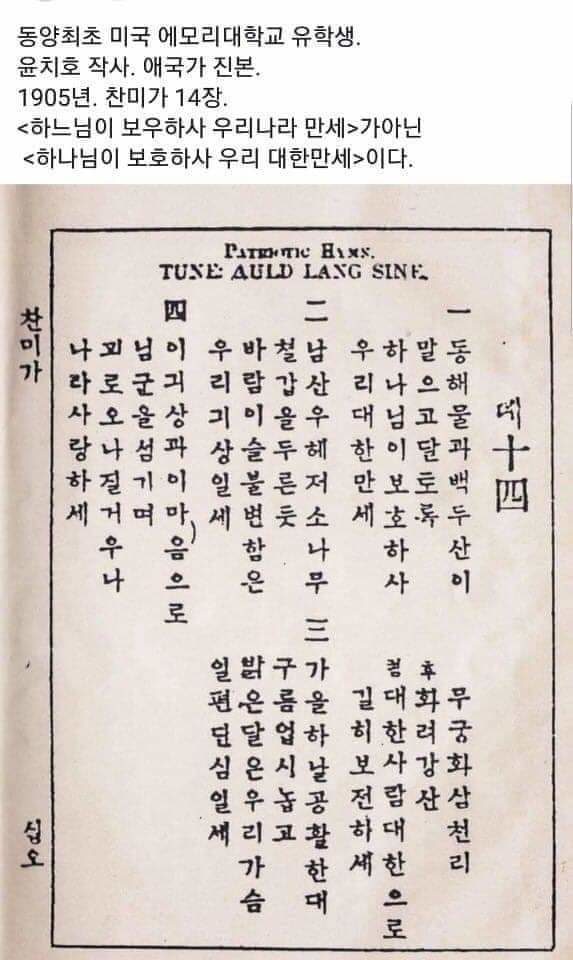 동양최초 미국 에모리대학교 유학생.
윤치호 작사. 애국가 진본.
1905년. 찬미가 14장.
<하느님이 보우하사 우리나라 만세>가아닌
<하나님이 보호하사 우리 대한만세>이다.
PATRIOTIC HYMN.
TUNE: AULD LANG SINE.
뎨十四
一
동해물과백두산이
말으고달토록
하나님이보호하사
우리대한만세
後렴
무궁화삼천리
화려강산
대한사람대한으로
길히보전하세
二
남산우헤저소나무
철갑을두른듯
바람이슬불변함은
우리긔상일세
三
가을하날공활한대
구름업시놉고
밝은달은우리가슴
일편단심일세
四
이긔상과이마음으로
님군을섬기며
괴로오나질거우나
나라사랑하세
찬미가
십오